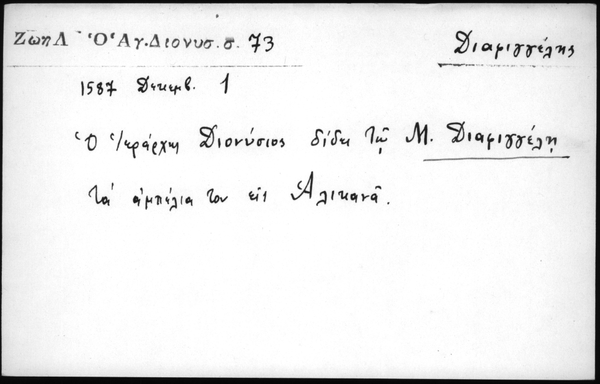 Ζώη Λ Ὁ Ἅγ. Διονυσ. σ. 73
Διαμιγγέλης
1587 Δεκεμβ. 1
Ὁ Ἱεράρχης Διονύσιος δίδει τῷ Μ. Διαμιγγέλῃ
τά ἀμπέλια του εἰς Ἀλικανᾶ.